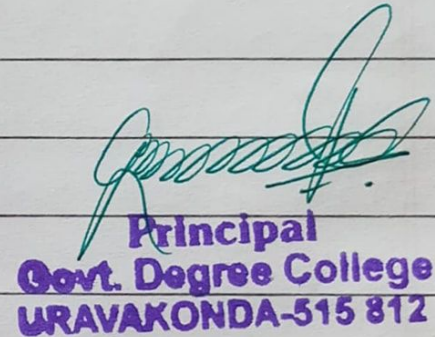 Principal
Govt. Degree College
URAVAKONDA-515 812